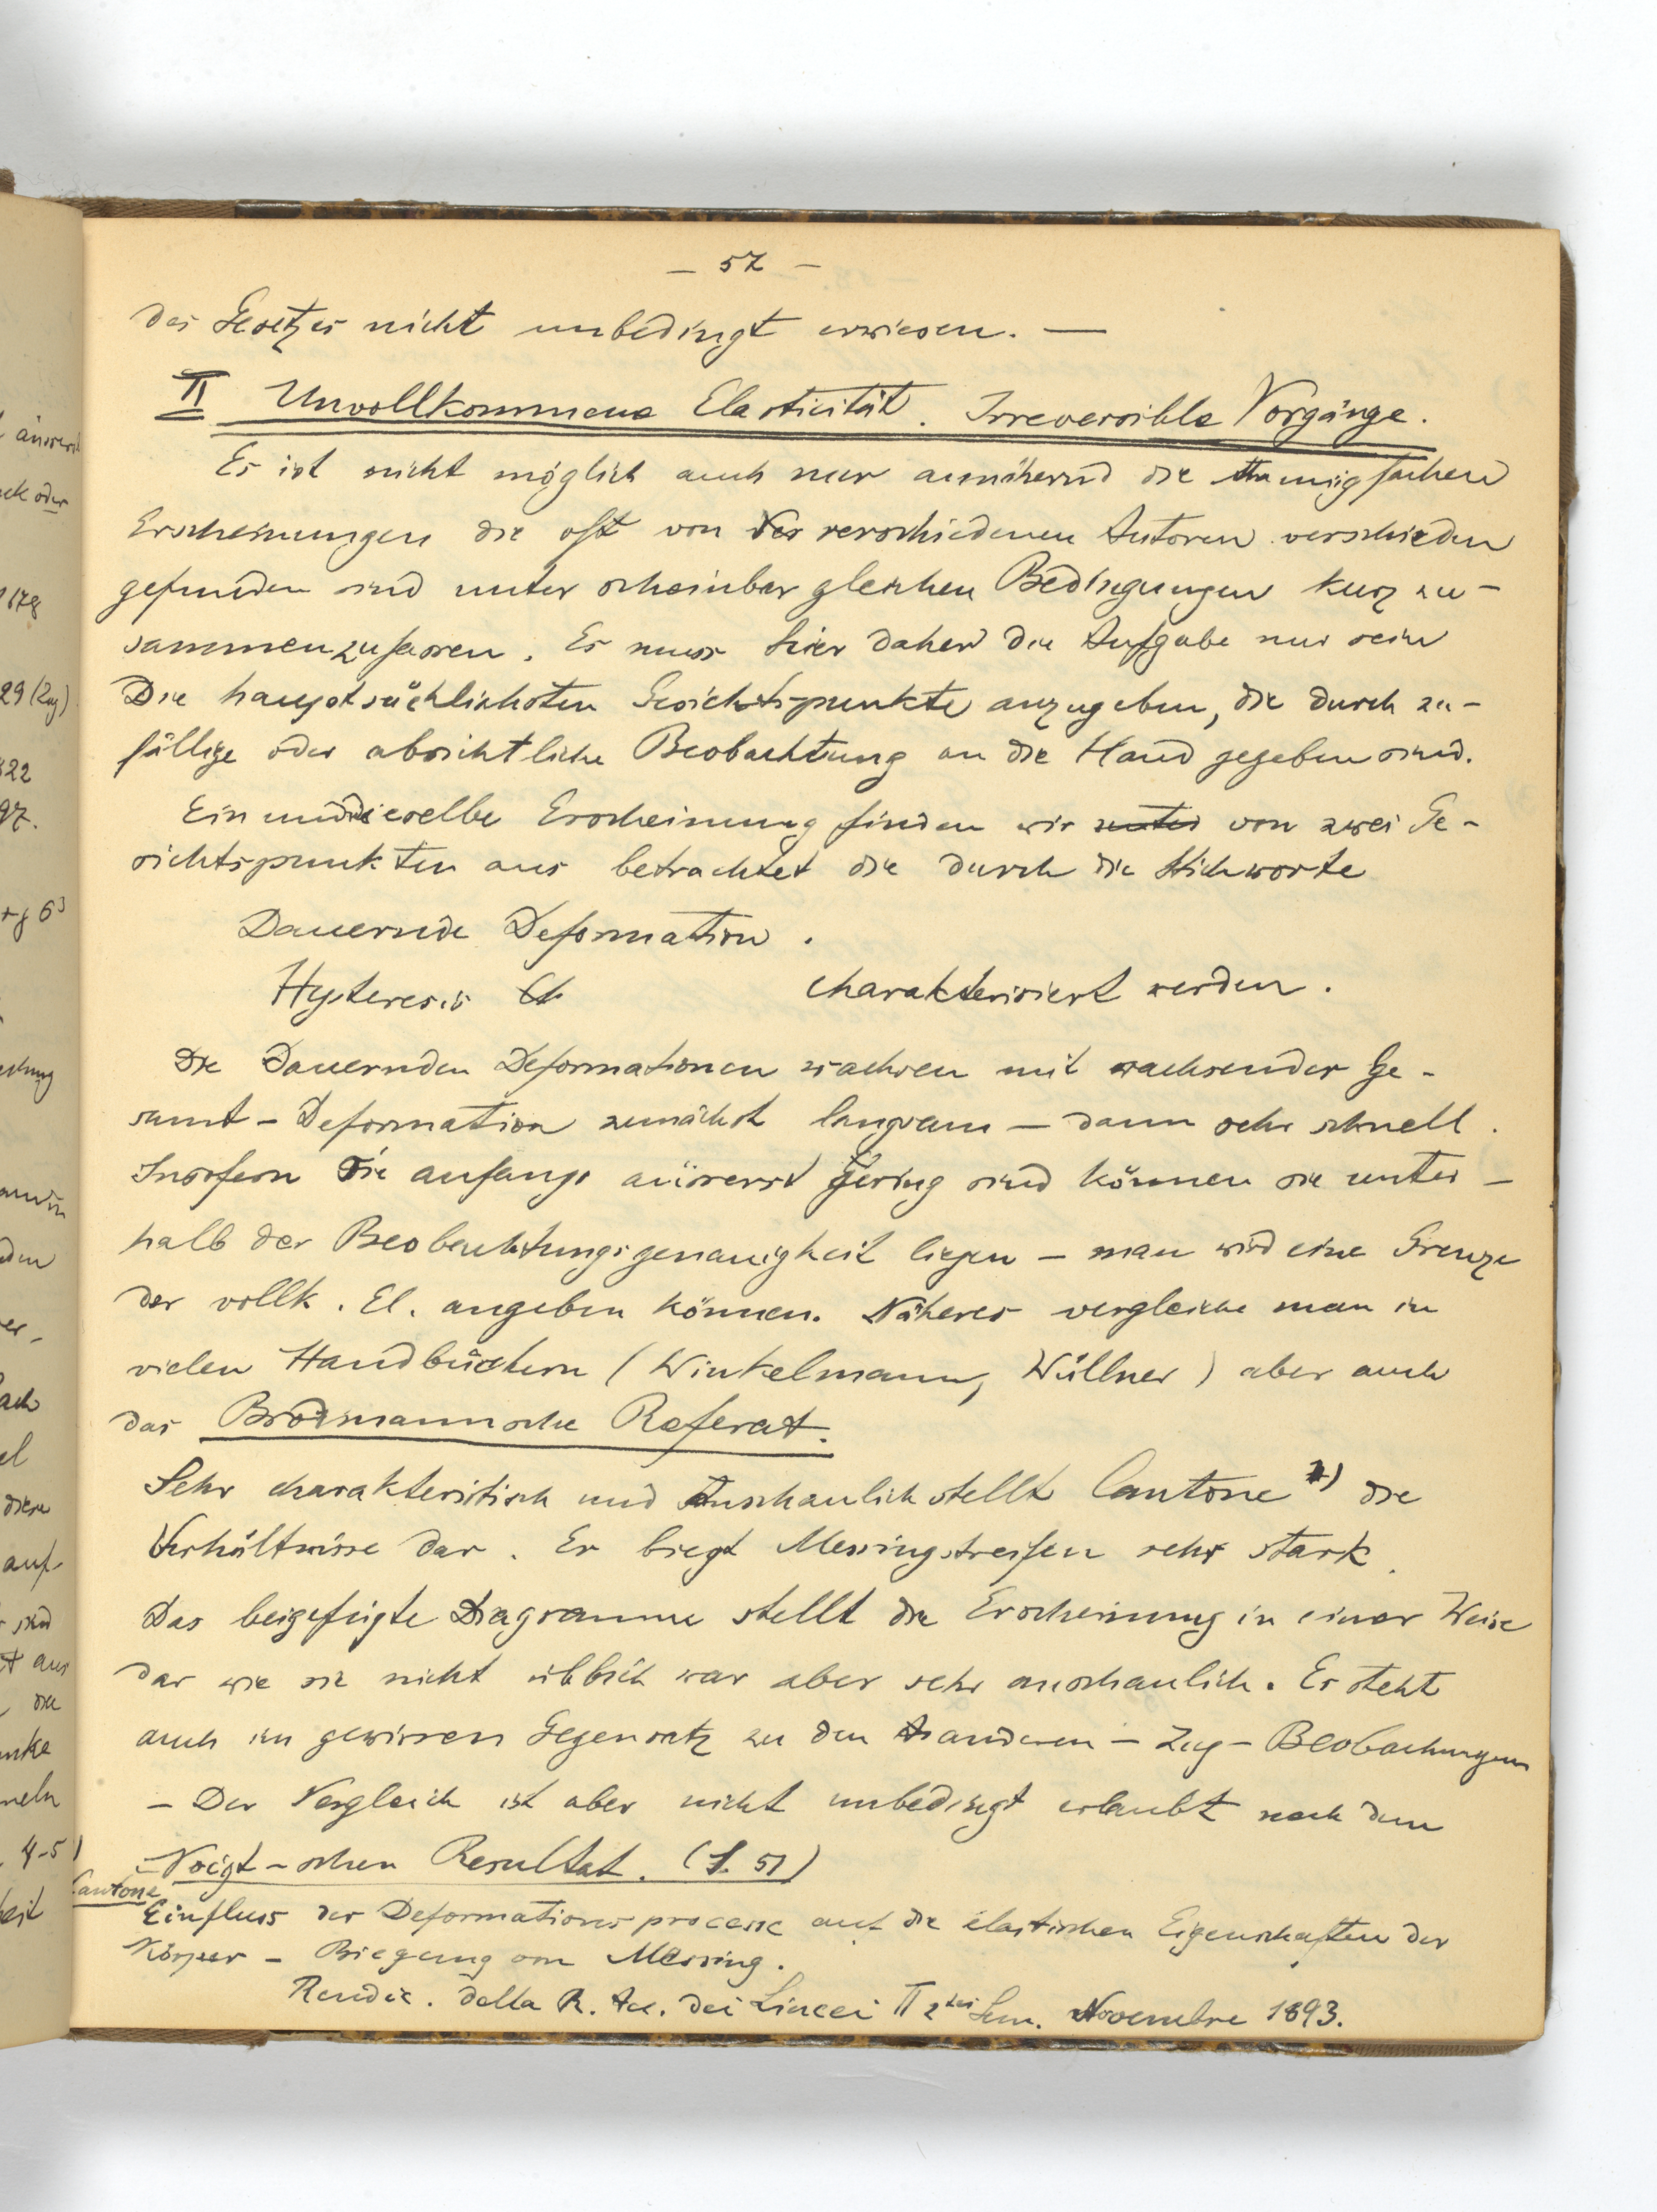 — 52 —
des Gesetzes nicht unbedingt erwiesen. —
II Unvollkommene Elasticität. Irreversible Vorgänge.
Es ist nicht möglich auch nur annähernd die mannigfachen
Erscheinungen die oft von verschiedenen Autoren verschieden
gefunden sind unter scheinbar gleichen Bedingungen kurz zu-
sammenzufassen. Es muss hier daher die Aufgabe nur sein
Die hauptsächlichsten Gesichtspunkte anzugeben, die durch zu-
fällige oder absichtliche Beobachtung an die Hand gegeben sind.
Ein und dieselbe Erscheinung finden wir unter von zwei Ge-
sichtspunkten aus betrachtet die durch die Stichworte
Dauernde Deformation.
Hysteresis charakterisiert werden.
Die Dauernden Deformationen wachsen mit wachsender Ge-
samt-Deformation zunächst langsam — dann sehr schnell.
Insofern sie anfangs äusserst gering sind können sie unter-
halb der Beobachtungsgenauigkeit liegen — man wird eine Grenze
der vollk. El. angeben können. Näheres vergleiche man in
vielen Handbüchern (Winkelmann, Wüllner) aber auch
das Brodmannsche Referat.
Sehr charakteristisch und anschaulich stellt Cantone 1) die
Verhältnisse dar. Er biegt Messingstreifen sehr stark.
Das beigefügte Diagramme stellt die Erscheinung in einer Weise
dar wie sie nicht üblich war aber sehr anschaulich. Er steht
auch im gewissen Gegensatz zu den anderen — Zug — Beobachungen
— Der Vergleich ist aber nicht unbedingt erlaubt nach dem
Voigt-schen Resultat. (S. 51)
Cantone
Einfluss der Deformationsprocesse auf die elastischen Eigenschaften der
Körper — Biegung von Messing.
Rendic. della R. Ac. dei Lincei II 2 Sem. Novembre 1893.